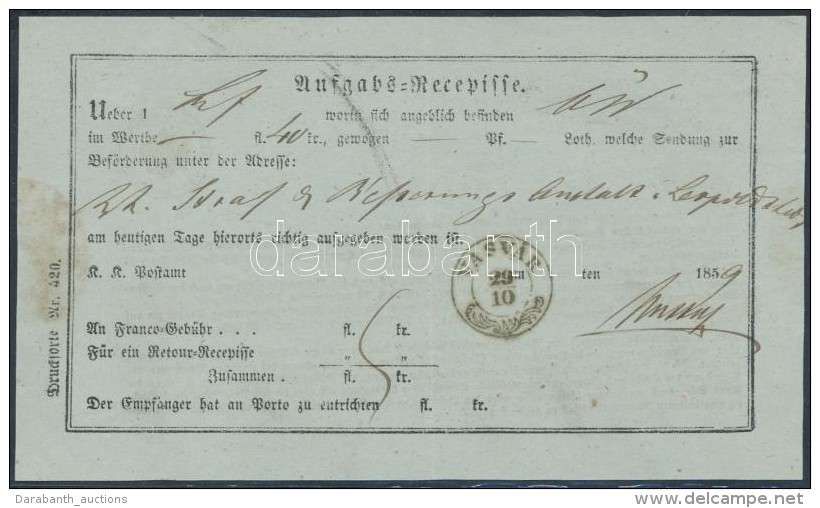 Aufgabs-Recepisse.
Ueber 1 worin sich angeblich befinden
im Werthe fl. 40 kr., gewogen Pf. Loth, welche Sendung zur
Beförderung unter der Adresse:
Straf & Besserungs Anstalt
am heutigen Tage hierorts richtig aufgegeben worden ist.
K. K. Postamt am ten 1859
VASVÁR
29
10
An Franco-Gebühr . . . fl. kr.
Für ein Retour-Recepisse " "
Zusammen . fl. 5 kr.
Der Empfänger hat an Porto zu entrichten fl. kr.
Drucksorte Nr. 420.
darabanth
Darabanth_auctions
www.delcampe.net